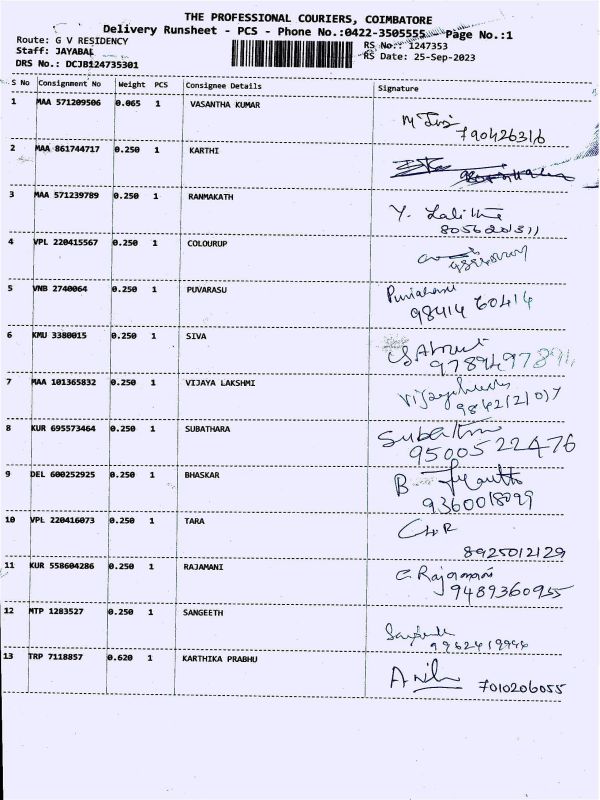 THE PROFESSIONAL COURIERS, COIMBATORE
Delivery Runsheet - PCS - Phone No.:0422-3505555 Page No.:1
Route: G V RESIDENCY RS No.: 1247353
Staff: JAYABAL RS Date: 25-Sep-2023
DRS No.: DCJB124735301
S No Consignment No Weight PCS Consignee Details Signature
1 MAA 571209506 0.065 1 VASANTHA KUMAR
790426316
2 MAA 861744717 0.250 1 KARTHI
3 MAA 571239789 0.250 1 RANMAKATH
Y.
8056201311
4 VPL 220415567 0.250 1 COLOURUP
5 VNB 2740064 0.250 1 PUVARASU
98414 60414
6 KMU 3380015 0.250 1 SIVA
9789497894
7 MAA 101365832 0.250 1 VIJAYA LAKSHMI
9842121077
8 KUR 695573464 0.250 1 SUBATHARA
9500522476
9 DEL 600252925 0.250 1 BHASKAR
B
9360018099
10 VPL 220416073 0.250 1 TARA
8925012129
11 KUR 558604286 0.250 1 RAJAMANI
C. Rajamani
9489360955
12 MTP 1283527 0.250 1 SANGEETH
9962419946
13 TRP 7118857 0.620 1 KARTHIKA PRABHU
7010206055